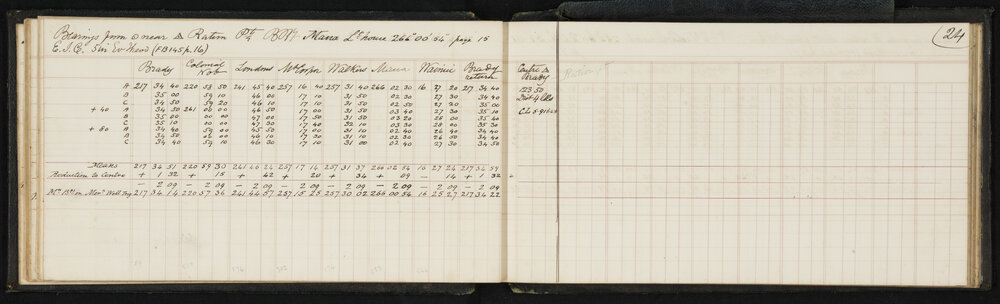 Bearings from near △ Ratim Pt BM Mana Lt house 266° 00' 54" page 15
E.I.C. 5in Ev Head (FB145 p. 16)
Brady Colonial Nob Londons McCoson Walkers Mana Wainui Brady return
A 217 34 40 220 58 50 241 45 40 257 16 40 257 31 40 266 02 30 16 27 20 217 34 40
B 35 00 59 10 46 00 17 10 31 50 02 30 27 30 34 40
C 34 50 59 20 46 10 17 10 31 50 02 50 27 20 35 00
+ 40 A 34 50 261 06 00 46 50 17 00 31 50 03 40 27 30 35 10
B 35 00 00 00 47 00 17 50 31 50 03 20 28 00 35 40
C 35 10 00 00 47 00 17 40 32 10 03 30 28 00 35 30
+ 80 A 34 40 59 00 45 50 17 00 31 10 02 40 26 40 34 40
B 34 50 00 46 10 17 30 31 10 02 30 26 50 34 40
C 34 40 59 10 46 30 17 10 31 00 02 40 27 30 34 50
Means 217 34 51 220 59 30 241 46 24 257 17 14 257 31 37 266 02 54 16 27 24 217 34 59
Reduction to Centre + 1 32 + 15 + 42 + 20 + 34 + 09 — 14 + 1 32
— 2 09 — 2 09 — 2 09 — 2 09 — 2 09 — 2 09 — 2 09 — 2 09
Mn Bgs on Merdn Well Trig 217 34 14 220 57 36 241 44 57 257 15 25 257 30 02 266 00 54 16 25 27 217 34 22
Centre to Brady
123 50
Dist 4 lks
24